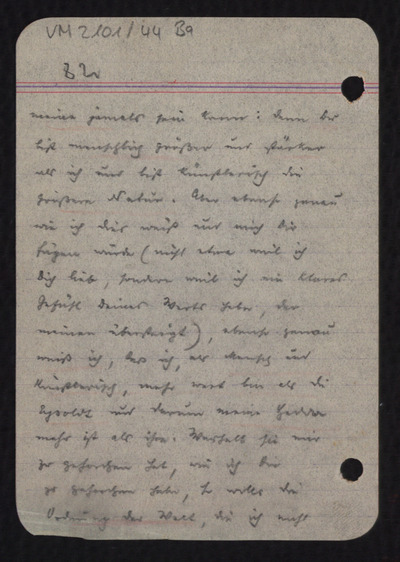 VM 2101/44 Ba
82
meine jemals sein kann: denn Du
bist menschlich größer und stärker
als ich und bist künstlerisch die
größere Natur. Aber ebenso genau
wie ich dies weiß und mich Dir
fügen würde (nicht etwa weil ich
Dich lieb, sondern weil ich ein klares
Gefühl deines Werts habe, der
meinen übersteigt), ebenso genau
weiß ich, dass ich, als Mensch und
künstlerisch, mehr wert bin als die
und darum meine
mehr ist als ihre. Weshalb sie mir
zu gehorchen hat, wie ich Dir
zu gehorchen habe, so will's die
Ordnung der Welt, die ich nicht